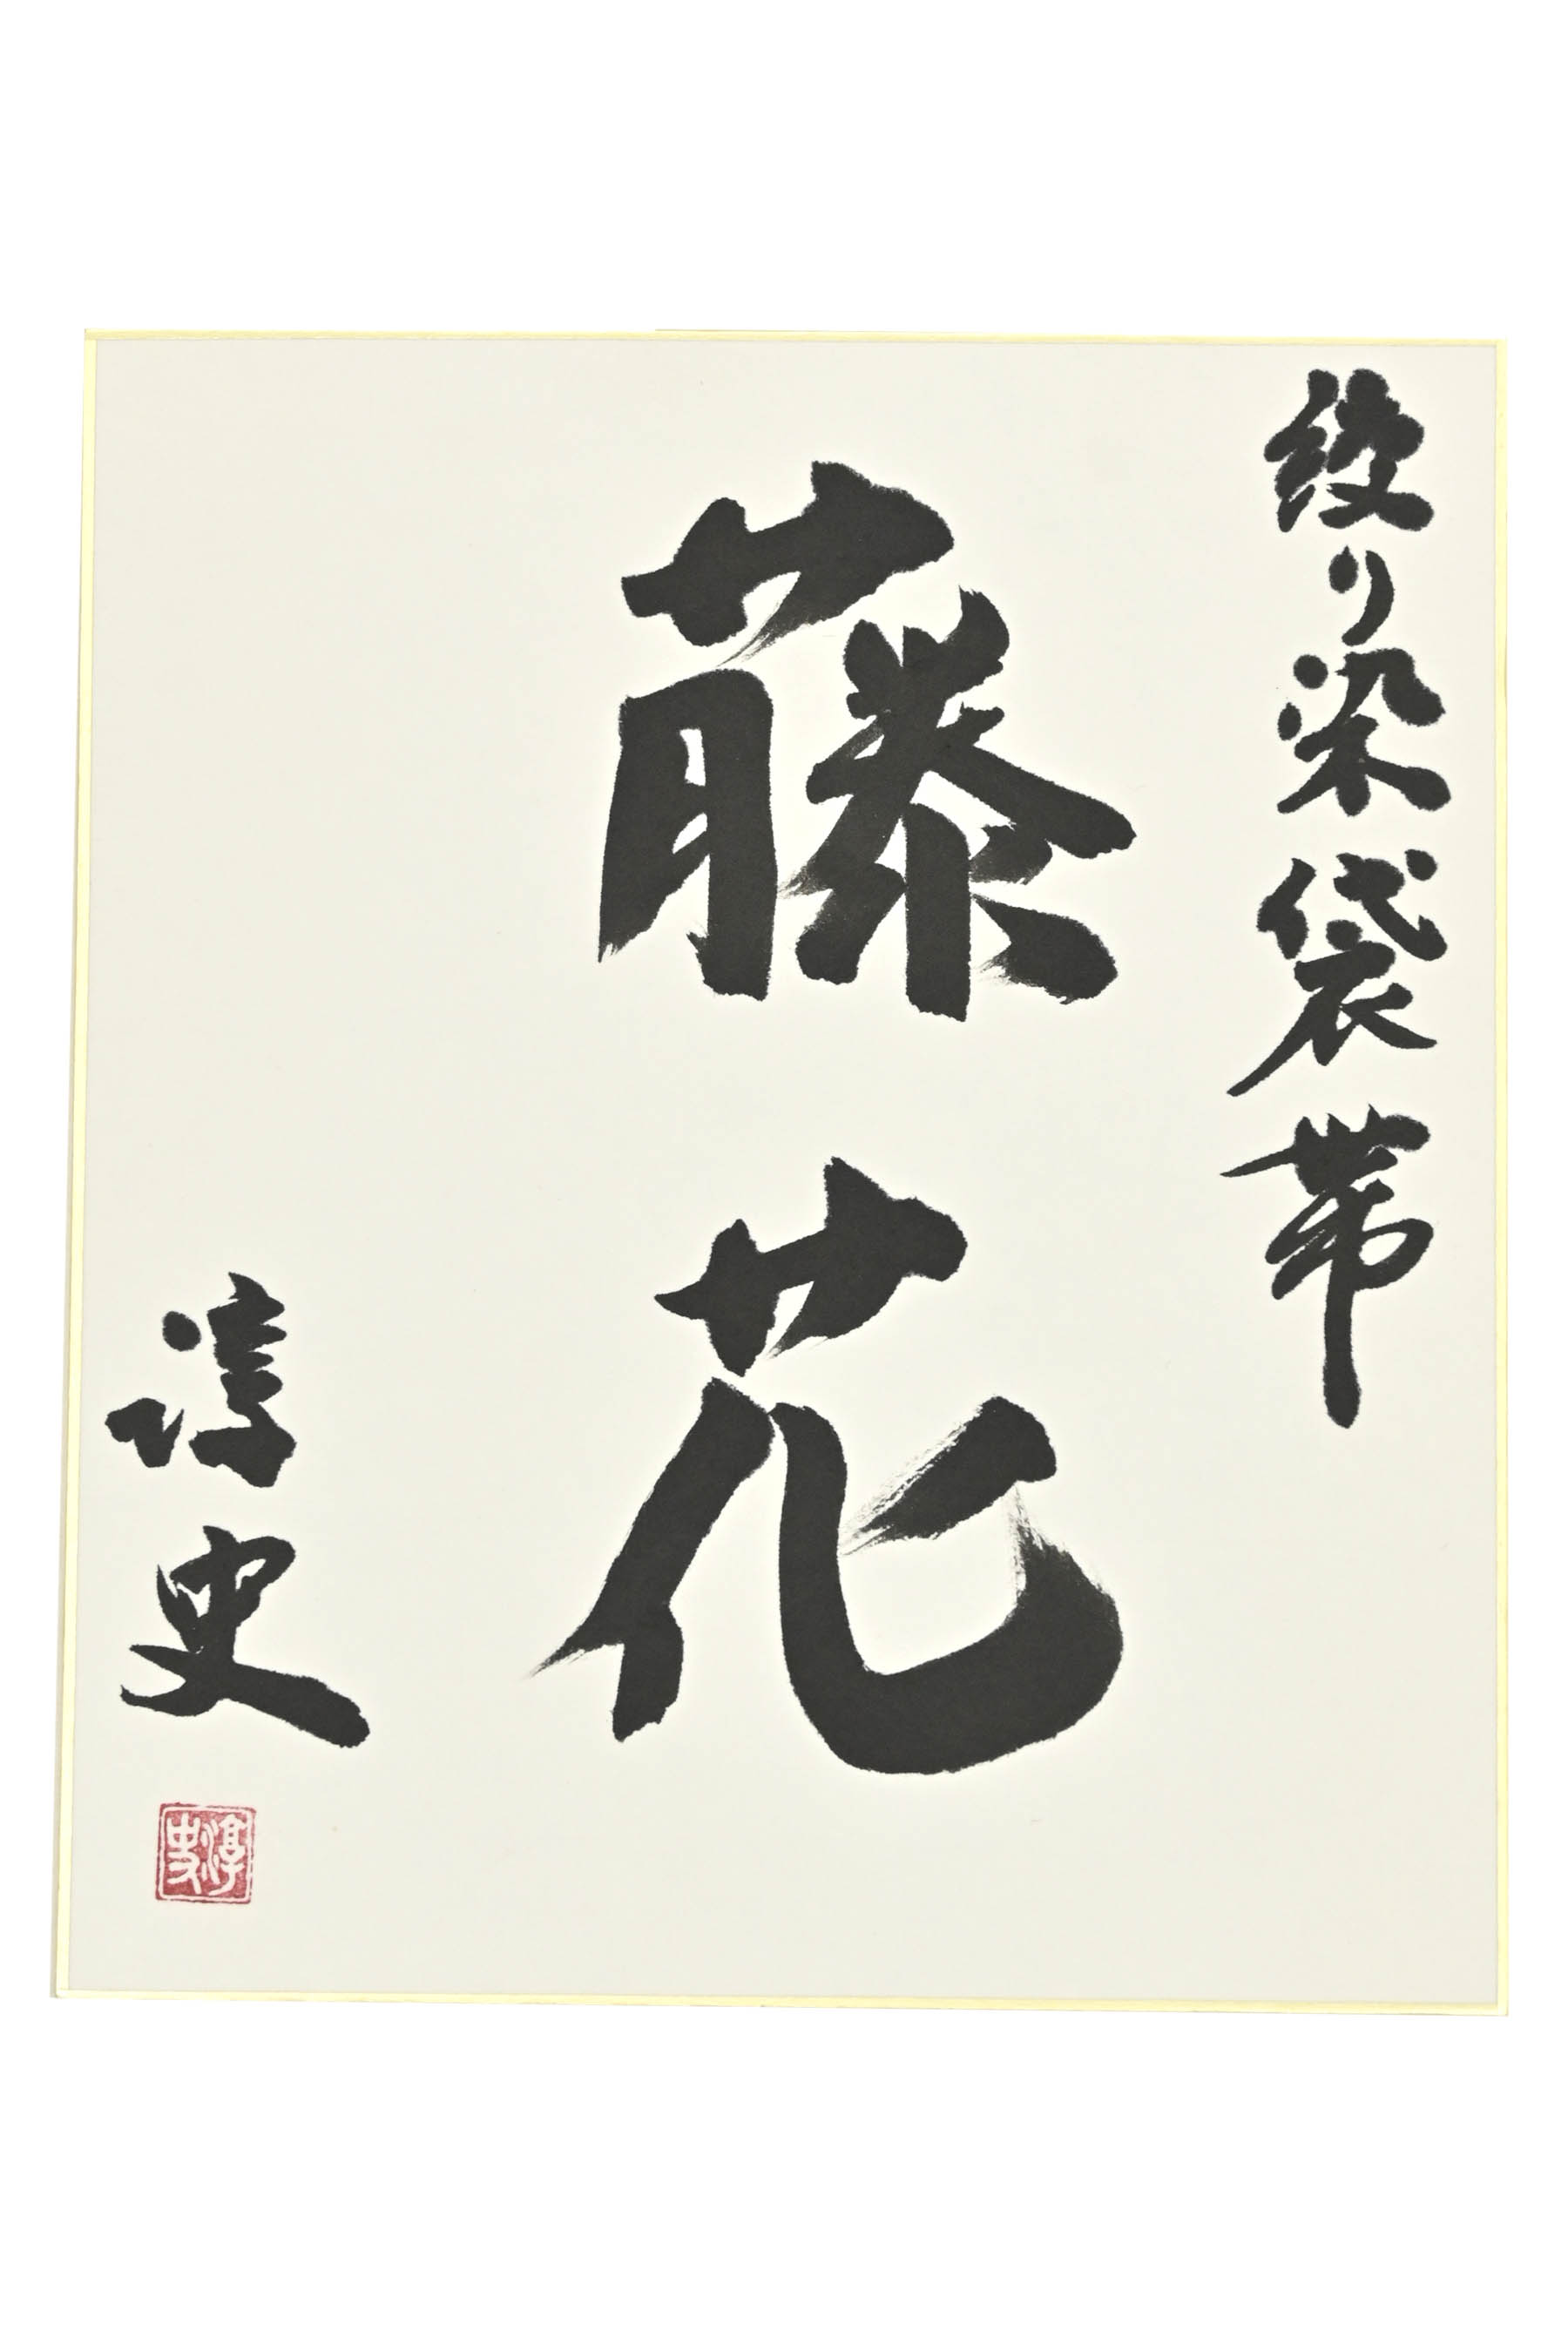 絞り染袋帯
藤花
淳史
淳史